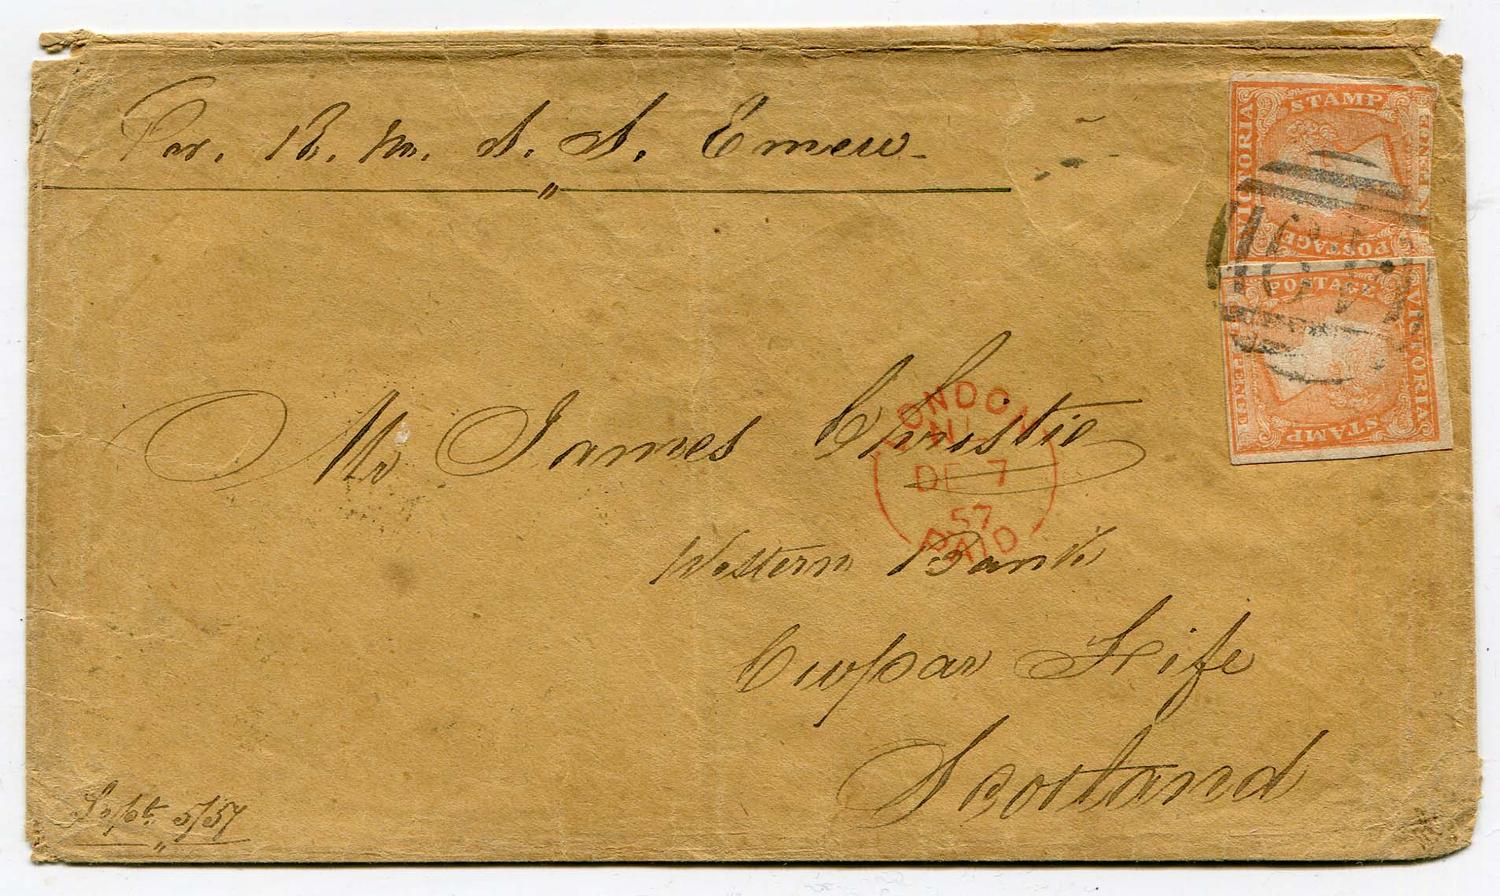 Per. R. M. S. S. Emeu.
STAMP
VICTORIA
POSTAGE
POSTAGE
VICTORIA
STAMP
PENCE
Mr James Christie
LONDON
DE 7
57
PAID
Western Bank
Cupar Fife
Scotland
Sept. 5/57